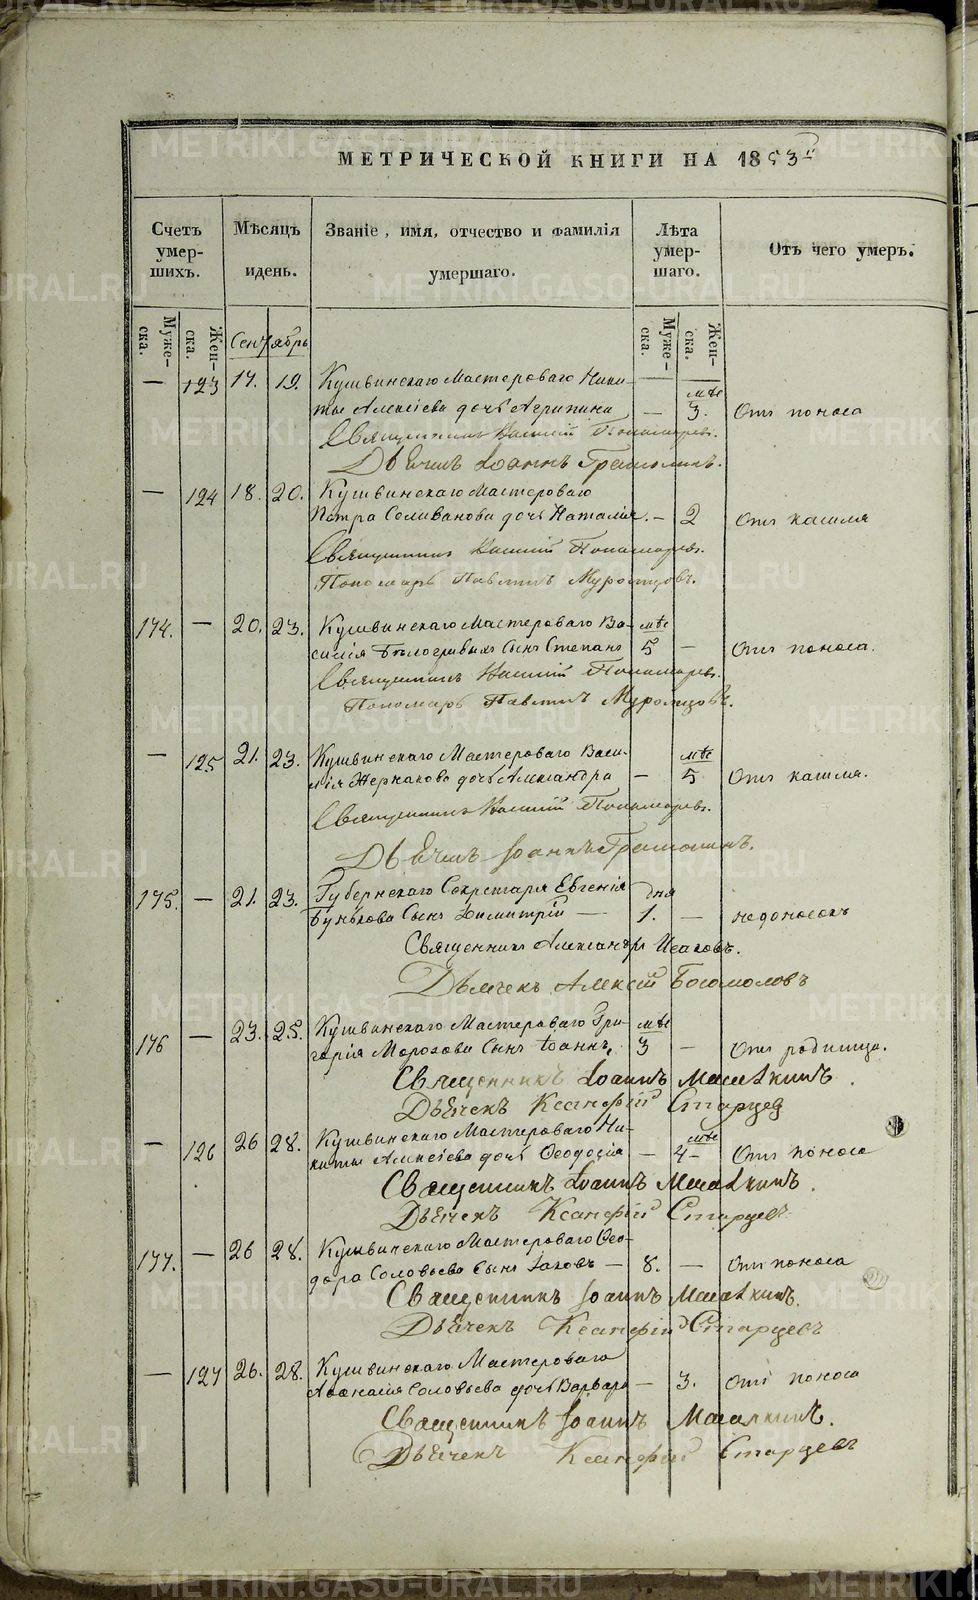 МЕТРИЧЕСКОЙ КНИГИ НА 1853
Счетъ умер-шихъ.
Мѣсяцъ идень.
Званіе, имя, отчество и фамилія умершаго.
Лѣта умер-шаго.
Отъ чего умеръ.
Муже-ска.
Жен-ска.
Муже-ска.
Жен-ска.
Сентябрь
— 123 17. 19. Кушвинскаго Мастероваго Ники-
мѣс
ты Алексѣева дочь Агрипина — 3. Отъ поноса
Священникъ Василій Пономаревъ.
Дьячекъ Іоаннъ
— 124 18. 20. Кушвинскаго Мастероваго
Петра Селиванова дочь Наталія — 2 Отъ кашля
Священникъ Василій Пономаревъ.
Пономарь Павлинъ Муромцовъ.
174. — 20. 23. Кушвинскаго Мастероваго Ва- мѣс
силія Бѣлогривыхъ Сынъ Степанъ 5 — Отъ поноса.
Священникъ Василій Пономаревъ.
Пономарь Павлинъ Муромцовъ.
— 125 21. 23. Кушвинскаго Мастероваго Васи- мѣс
лія Жернакова дочь Александра — 5 Отъ кашля.
Священникъ Василій Пономаревъ.
Дьячекъ Іоаннъ
175. — 21. 23. Губернскаго Секретаря Евгенія дня
Бунькова Сынъ Димитрій — 1. — недоносокъ
Священникъ Александръ Исаковъ.
Дьячекъ Алексій Богомоловъ
176 — 23. 25. Кушвинскаго Мастероваго Гри- мѣс
горія Морозова Сынъ Іоаннъ, 3 — Отъ родимца.
Священникъ Іоаннъ
Дьячекъ Ксанфій Старцев
— 126 26 28. Кушвинскаго Мастероваго Ни- мѣс
киты Алексѣева дочь Ѳеодосія — 4 — Отъ поноса
Священникъ Іоаннъ
Дьячекъ Ксанфій Старцевъ
177. — 26 28. Кушвинскаго Мастероваго Ѳео-
дора Соловьева Сынъ Іаковъ — 8. — Отъ поноса
Священникъ Іоаннъ
Дьячекъ Ксанфій Старцевъ
— 127 26. 28. Кушвинскаго Мастероваго
Аѳанасія Соловьева дочь Варвара — 3. Отъ поноса
Священникъ Іоаннъ
Дьячекъ Ксанфій Старцевъ
METRIKI.GASO-URAL.RU